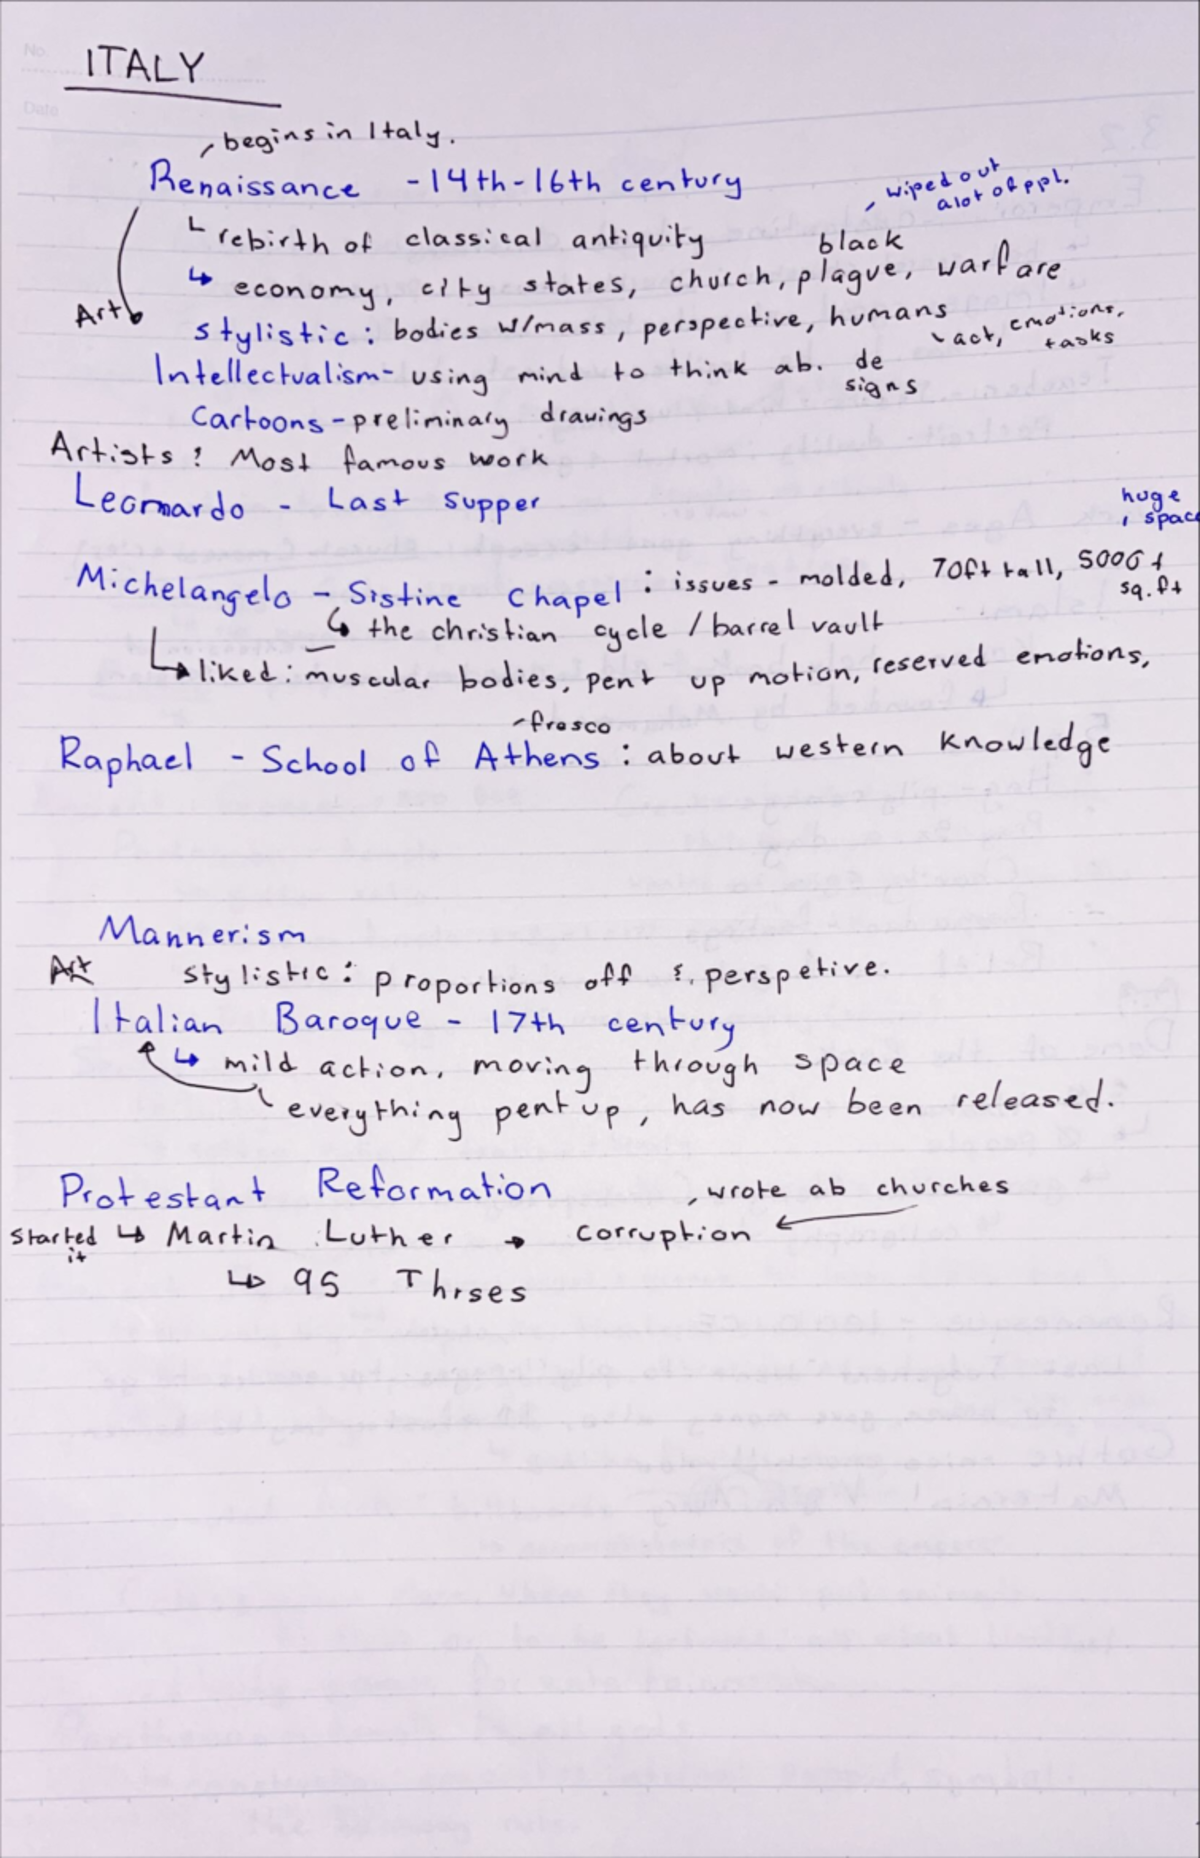 No.
Date
ITALY
begins in Italy.
Renaissance - 14th-16th century
wiped out
alot of ppl.
↳ rebirth of classical antiquity
black
↳ economy, city states, church, plague, warfare
Art
stylistic: bodies w/mass, perspective, humans
act, emotions,
tasks
Intellectualism- using mind to think ab. de
signs
Cartoons - preliminary drawings
Artists: Most famous work
Leornardo - Last supper
huge
space
Michelangelo - Sistine Chapel: issues - molded, 70ft tall, 5000 ft
sq.ft
↳ the christian cycle / barrel vault
↳ liked: muscular bodies, pent up motion, reserved emotions,
fresco
Raphael - School of Athens: about western knowledge
Mannerism
Art
stylistic: proportions off &. perspetive.
Italian Baroque - 17th century
↳ mild action, moving through space
everything pent up, has now been released.
Protestant Reformation
wrote ab churches
started ↳ Martin Luther → corruption
it
↳ 95 Thrses